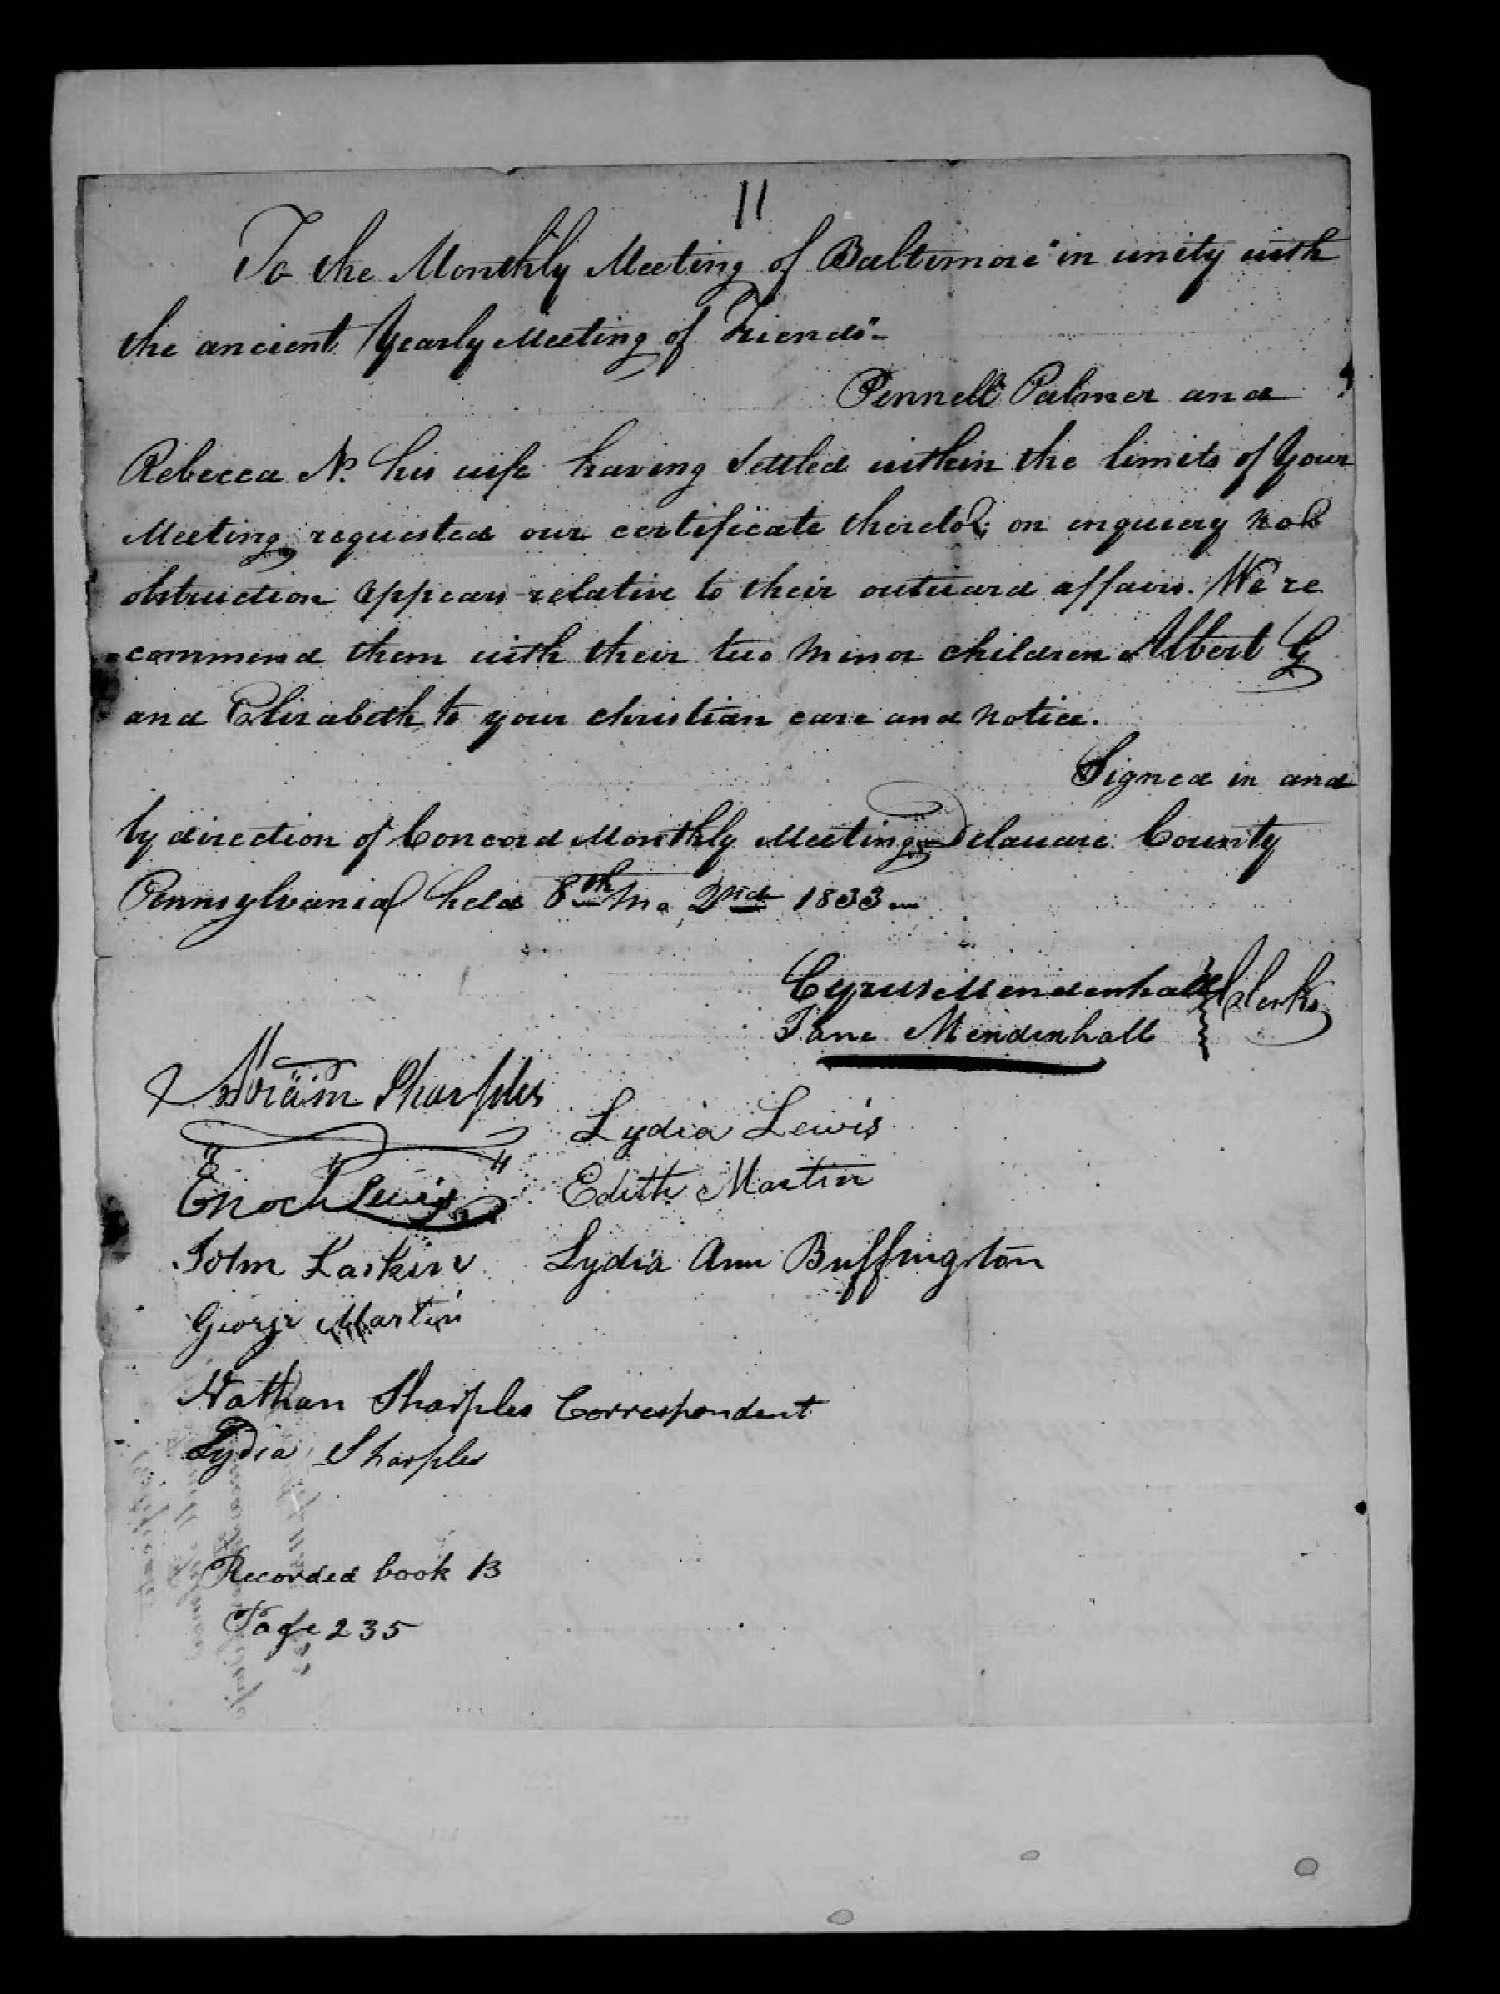 11
To the Monthly Meeting of Baltimore "in unity with
the ancient Yearly Meeting of Friends"-
Pennell Palmer and
Rebecca N. his wife having settled within the limits of your
Meeting requested our certificate thereto; on enquiery no
obstruction appears relative to their outward affairs. We re
commend them with their two minor children Albert G
and Elizabeth to your christian care and notice.
Signed in and
by direction of Concord Monthly Meeting Delaware County
Pennsylvania held 8th Mo 2nd 1833
Cyrus Mendenhall
Jane Mendenhall
Clerks
Abraim Sharples
Lydia Lewis
Enoch Lewis
Edith Martin
John Larkin
Lydia Ann Buffington
George Martin
Nathan Sharples Correspondent
Lydia Sharples
Recorded book B
Page 235